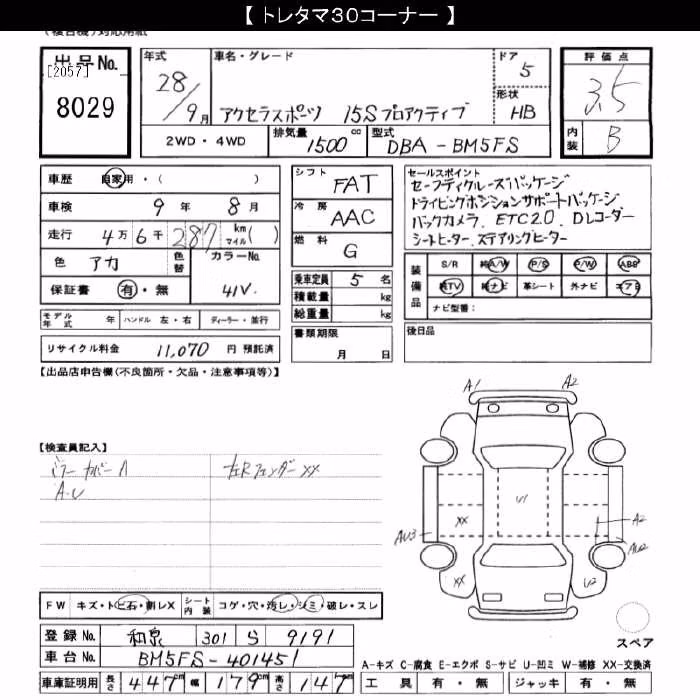 【 トレタマ30コーナー 】
(複合機)対応用紙
出品No. [2057] 8029
年式 28/9月
車名・グレード アクセラスポーツ 15Sプロアクティブ
ドア 5
形状 HB
評価点 3.5
内装 B
2WD・4WD
排気量 1500 cc
型式 DBA-BM5FS
車歴 自家用・( )
車検 9年 8月
走行 4万6千287 km マイル( )
色 アカ 色替 カラーNo. 41V.
保証書 有・無
モデル年式 年 ハンドル 左・右 ディーラー・並行
リサイクル料金 11,070 円 預託済
シフト FAT
冷房 AAC
燃料 G
乗車定員 5名
積載量 kg
総重量 kg
書類期限 月 日
セールスポイント
セーフティクルーズパッケージ
ドライビングポジションサポートパッケージ
バックカメラ. ETC2.0. Dレコーダー
シートヒーター. ステアリングヒーター
装備品 S/R 純A/W P/S P/W ABS
純TV 純ナビ 革シート 外ナビ エアB
ナビ型番:
後日品
【出品店申告機(不良箇所・欠品・注意事項等)】
【検査員記入】
A.U
左Rフェンダーxx
A1 A2
U1
XX A2
AU3 AU2
XX U2
スペア
FW キズ・トビ石・割レX シート内装 コゲ・穴・汚レ・シミ・破レ・スレ
登録No. 和泉 301 S 9191
車台No. BM5FS-401451
車庫証明用 長さ 447cm 幅 179cm 高さ 147cm
A-キズ C-腐食 E-エクボ S-サビ U-凹ミ W-補修 XX-交換済
工具 有・無 ジャッキ 有・無